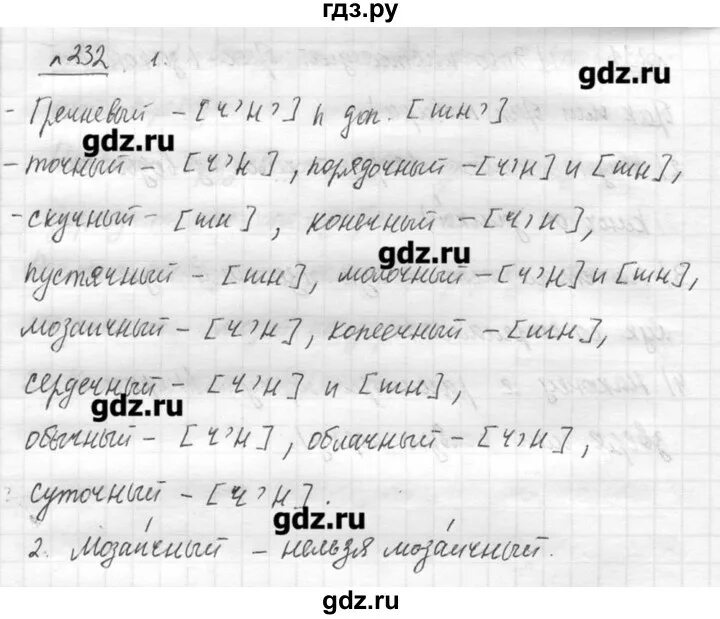 гдз.ру
п232 1.
gdz.ru
- Гречневый - [ч'н'] и доп. [шн']
gdz.ru
- точный - [ч'н], порядочный - [ч'н] и [шн],
- скучный - [шн], конечный - [ч'н],
gdz.ru
пустячный - [шн], молочный - [ч'н] и [шн],
мозаичный - [ч'н], копеечный - [шн],
сердечный - [ч'н] и [шн],
gdz.ru
обычный - [ч'н], облачный - [ч'н],
суточный - [ч'н].
gdz.ru
2. Мозаи́чный - нельзя моза́ичный.
gdz.ru